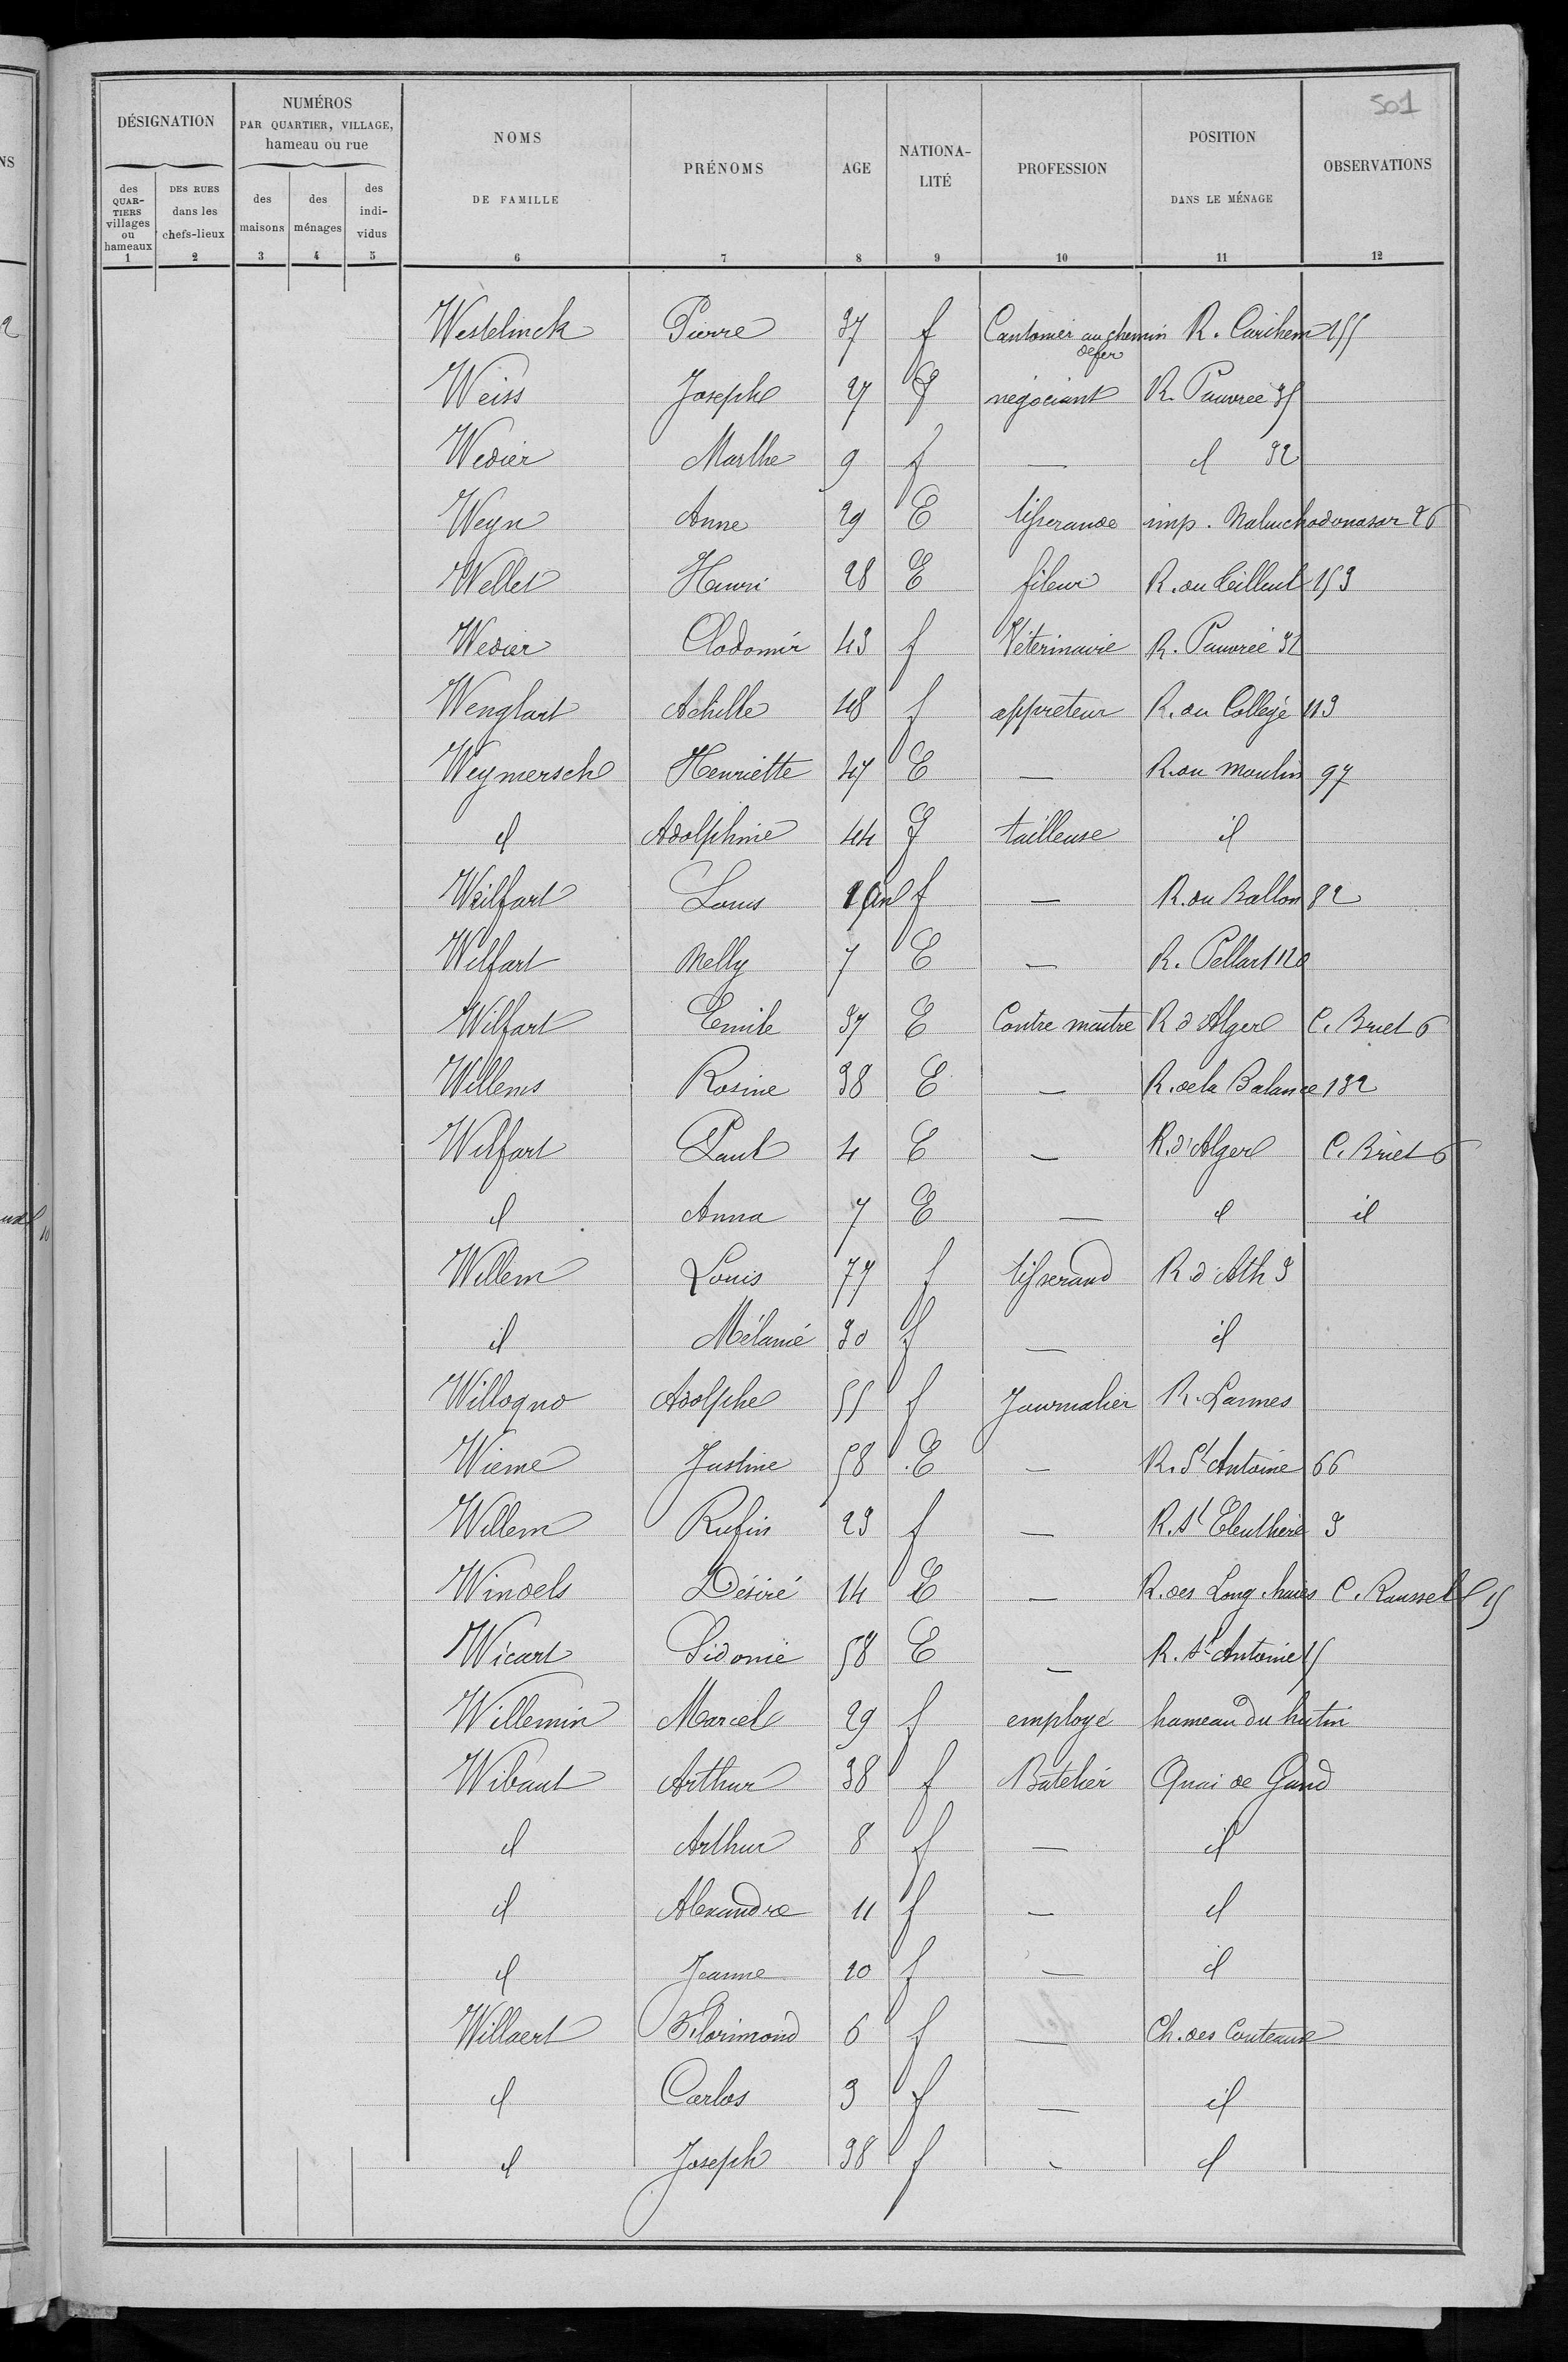 501
DÉSIGNATION
NUMÉROS PAR QUARTIER, VILLAGE, hameau ou rue
NOMS DE FAMILLE
PRÉNOMS
AGE
NATIONA-LITÉ
PROFESSION
POSITION DANS LE MÉNAGE
OBSERVATIONS
des QUAR-TIERS villages ou hameaux
DES RUES dans les chefs-lieux
des maisons
des ménages
des indi-vidus
1 2 3 4 5 6 7 8 9 10 11 12
Westelinck Pierre 37 f Cantonier au chemin de fer R. Carihem 155
Weiss Joseph 27 f négociant R. Pauvrée 35
Wedier Marthe 9 f — id 32
Weyn Anne 29 E tisserande imp. Nabuchodonasar 26
Wellet Henri 28 E fileur R. du tilleul 153
Wedier Clodomir 43 f Vétérinaire R. Pauvrée 32
Wenglart Achille 48 f appreteur R. du Collège 113
Weymersch Henriette 47 E — R. du moulin 97
id Adolphine 44 f tailleuse id
Wilfart Louis 1 an f — R. du Ballon 82
Wilfart Nelly 7 E — R. Pellart 120
Wilfart Emile 37 E Contre maitre R d'Alger C. Briet 6
Willems Rosine 38 E — R. de la Balance 132
Wilfart Paul 4 E — R. d'Alger C. Briet 6
id Anna 7 E — id id
Willem Louis 77 f tisserand R d'Ath 3
id Mélanie 30 f — id
Willoqno Adolphe 55 f Journalier R. Lannes
Wieme Justine 58 E — R. St Antoine 66
Willem Rufin 23 f — R. St Eleuthère 3
Windels Désiré 14 E — R. des Long. haies C. Roussel 15
Wicart Sidonie 58 E — R. St Antoine 15
Willemin Marcel 29 f employé hameau du hutin
Wibaut Arthur 38 f Batelier Quai de Gand
id Arthur 8 f — id
id Alexandre 11 f — id
id Jeanne 10 f — id
Willaert Florimond 6 f — Ch. des Couteaux
id Carlos 3 f — id
id Joseph 38 f — id